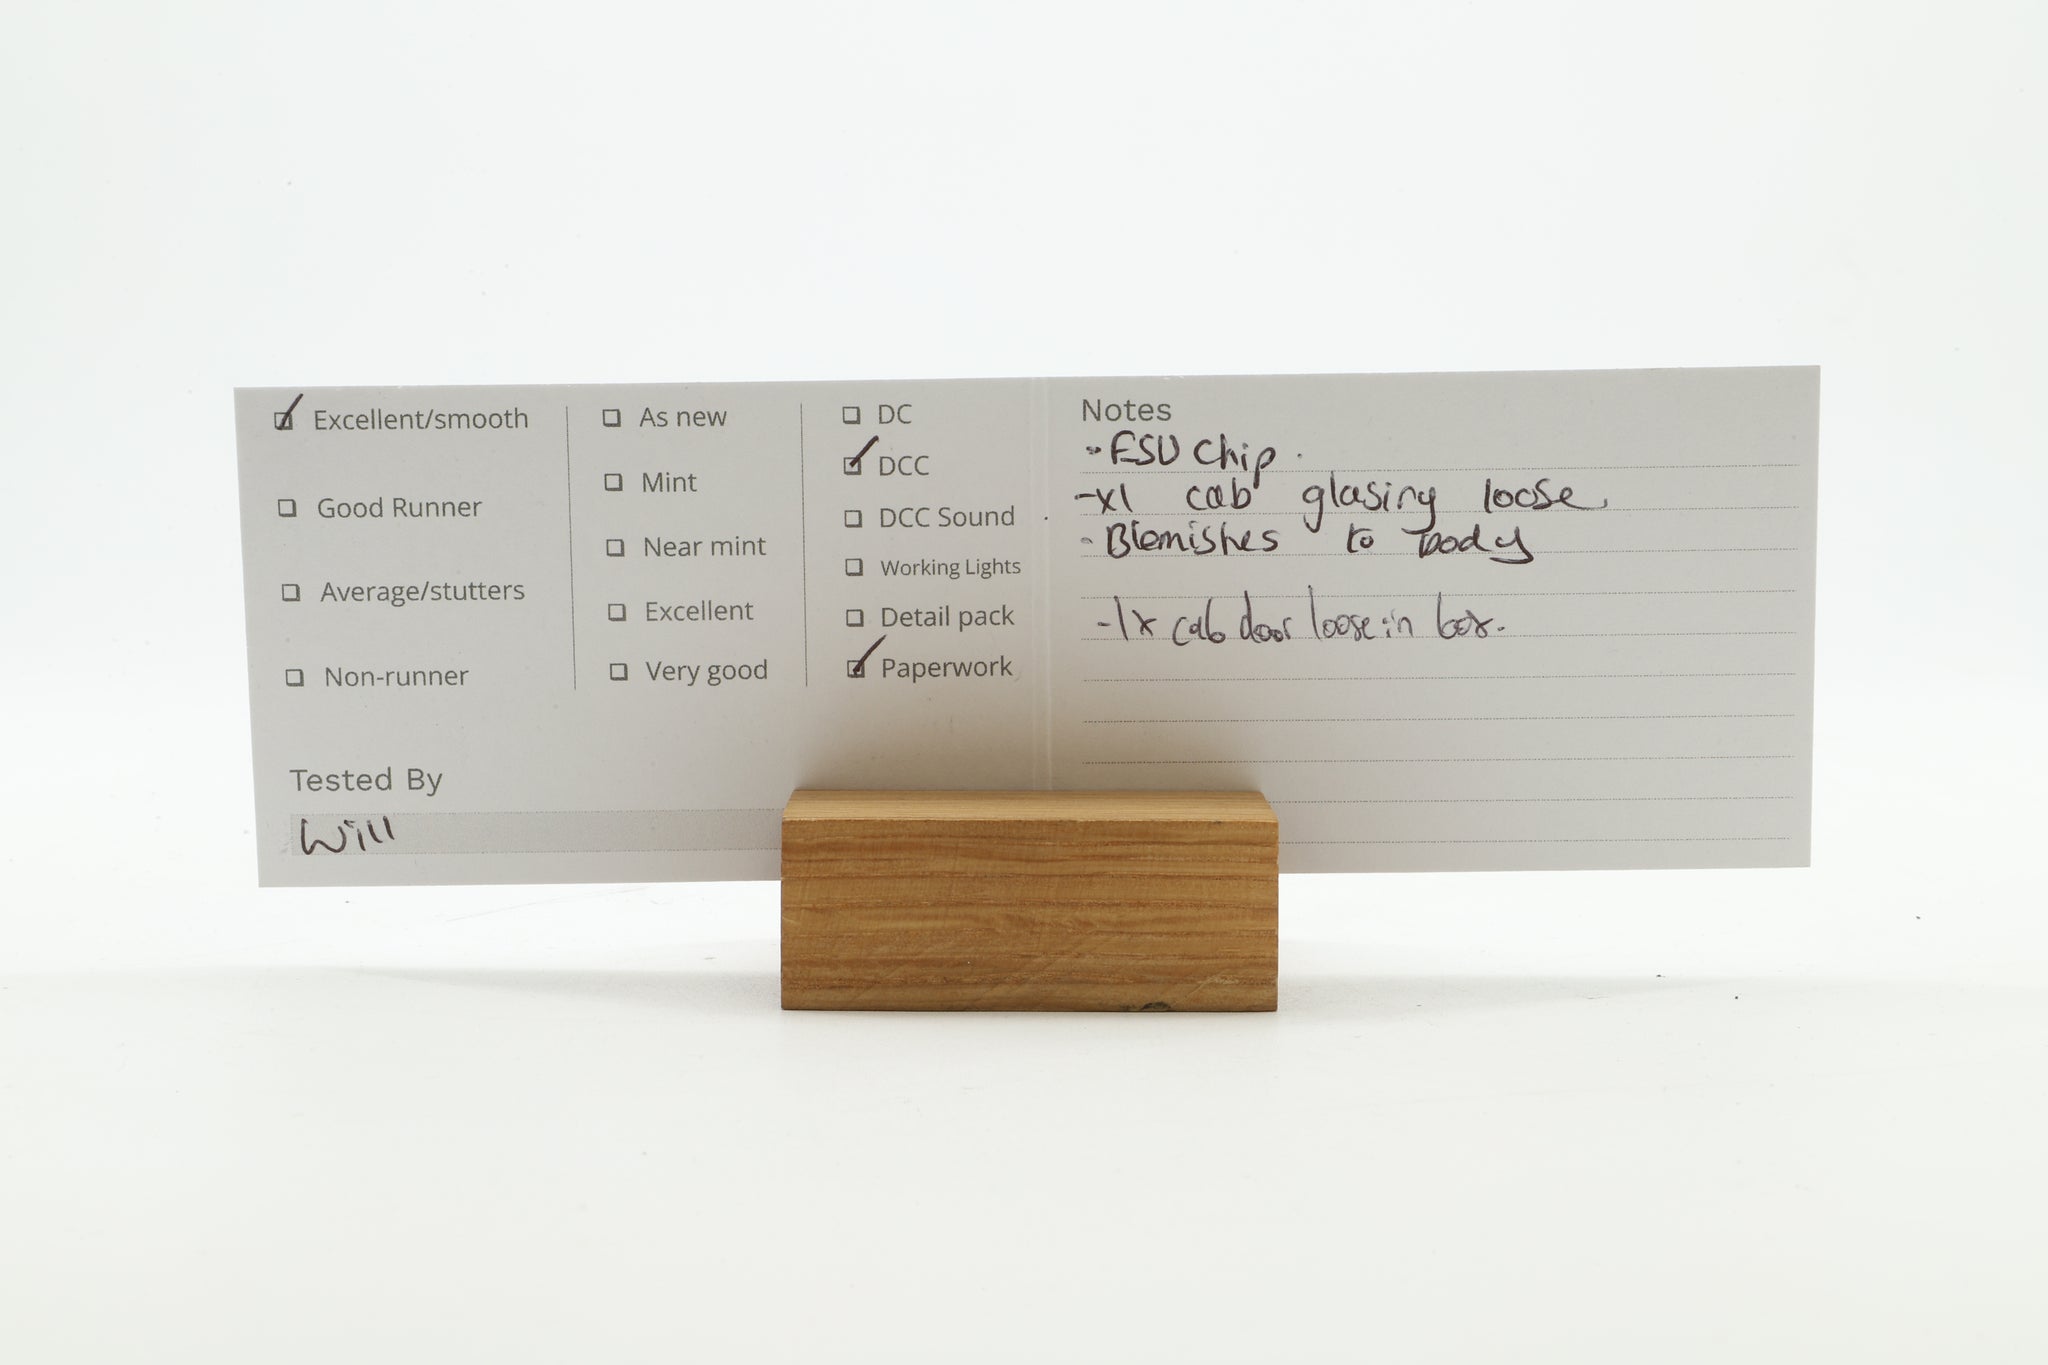 Excellent/smooth
Good Runner
Average/stutters
Non-runner
As new
Mint
Near mint
Excellent
Very good
DC
DCC
DCC Sound
Working Lights
Detail pack
Paperwork
Tested By
Will
Notes
- ESU Chip.
- x1 cab glasing loose.
- Blemishes to body
- 1x cab door loose in box.